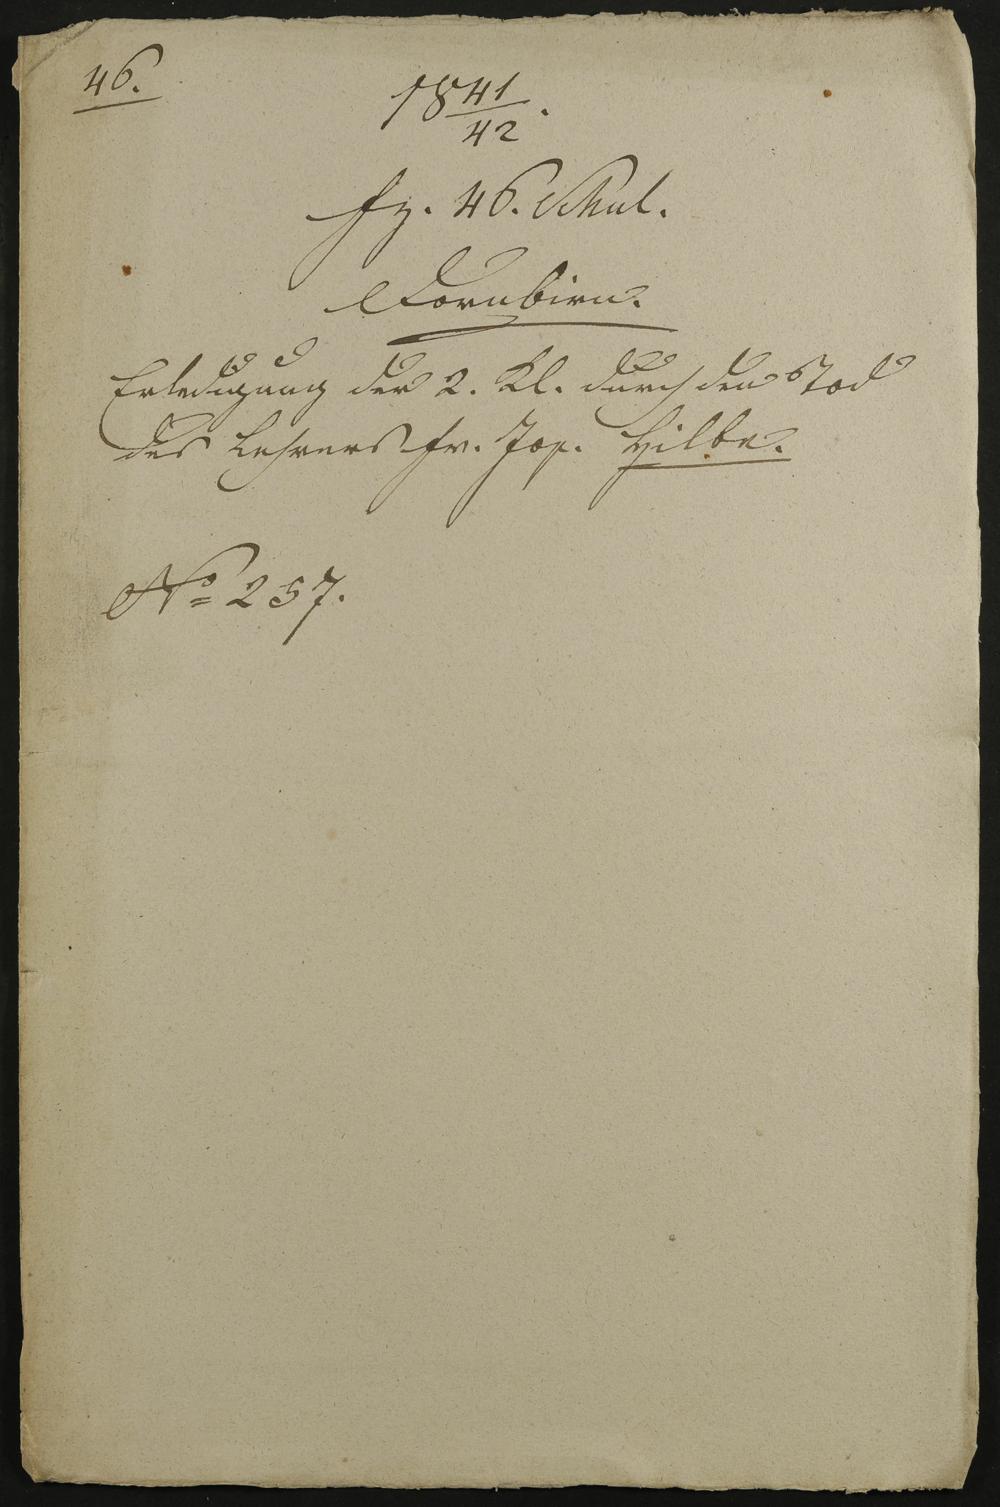 46.
18 41/42.
fz. 46. Schul.
Dornbirn.
Erledigung der 2. Kl. durch den Tod
des Lehrers Fr. Jos. Hilbe.
No 257.